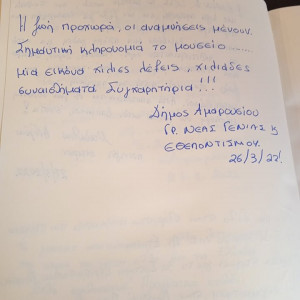 Η ζωή προχωρά, οι αναμνήσεις μένουν.
Σημαντική κληρονομιά το μουσείο......
μια εικόνα χίλιες λέξεις, χιλιάδες
συναισθήματα Συγχαρητήρια!!!
Δήμος Αμαρουσίου
Γρ. ΝΕΑΣ ΓΕΝΙΑΣ &
ΕΘΕΛΟΝΤΙΣΜΟΥ.
26/3/22!